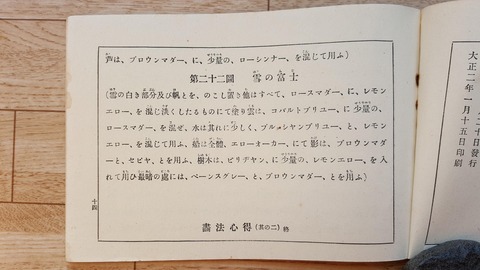 芦は、ブロウンマダー、に、少量の、ローシンナー、を混じて用ふ)
第二十二圖　雪の富士
(雪の白き部分及び帆とを、のこし置き他はすべて、ロースマダー、に、レモン
エロー、を混じ淡くしたるものにて塗り雲は、コバルトブリユー、に少量の、
ロースマダー、を混ぜ、水は其れに少しく、プルシヤンブリユー、と、レモン
エロー、を混じて用ふ、船は全體、エローオーカー、にて影は、ブロウンマダ
ーと、セピヤ、とを用ふ、樹木は、ビリヂヤン、に少量の、レモンエロー、を入
れて用ひ最暗の處には、ペーンスグレー、と、ブロウンマダー、とを用ふ)
畫法心得(其の二)終
十四
大正二年一月十五日印刷
二十日發行